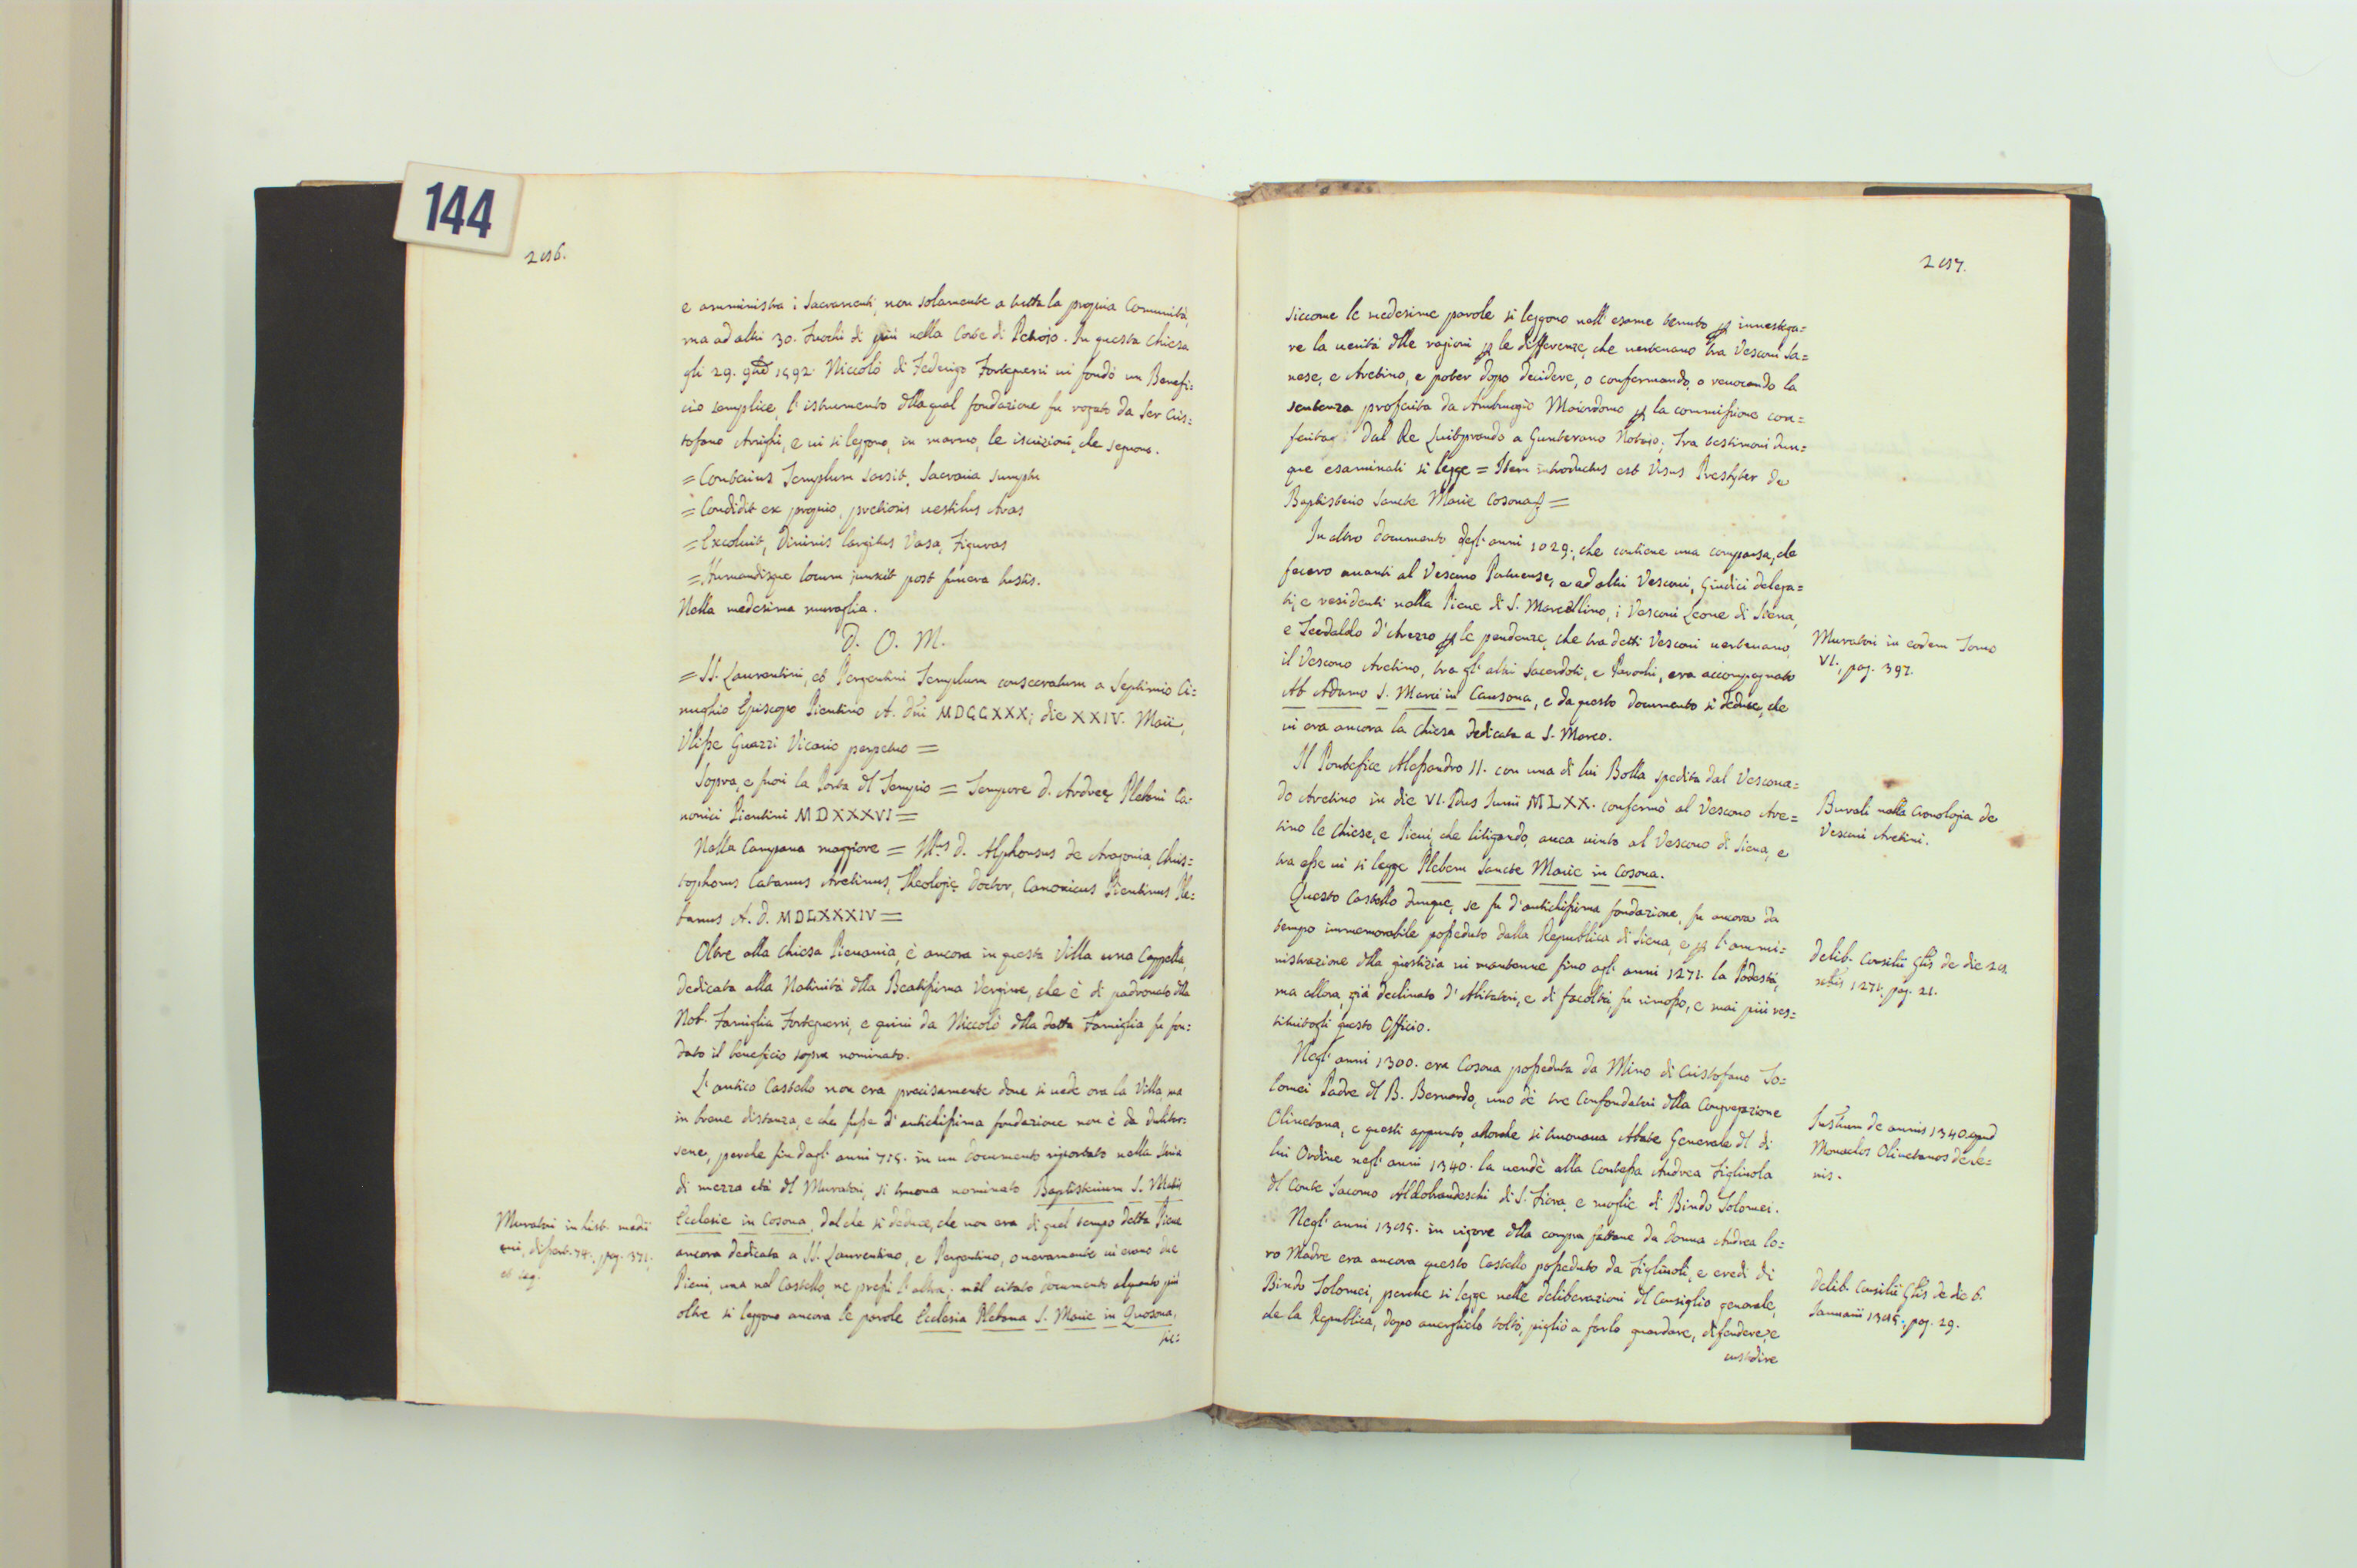 144
256.
e amministra i Sacramenti, non solamente a tutta la propria Comunità,
ma ad altri 30. Fuochi di più nella Corte di Petrojo. In questa Chiesa
gli 29. 9bre 1592. Niccolò di Federigo Forteguerri vi fondò un Benefi=
cio semplice, l'istrumento dlla qual fondazione fu rogato da Ser Cris=
tofano Arrighi, e vi si leggono, in marmo, le iscrizioni, che seguono.
= Conterius Templum sarsit, Sacraria sumptu
= Condidit ex proprio, pretiosis vestibus Aras
= Excoluit, Divinis largitus Vasa, Figuras
= Humandisque locum iunxit post funera bustis.
Nella medesima muraglia.
D. O. M.
= SS. Laurentini, et Pergentini Templum consecratum a Septimio Ci=
nughio Episcopo Pientino A. Dni MDCCXXX; die XXIV. Maii,
Ulisse Guazzi Vicario perpetuo =
Sopra, e fuori la Porta dl Tempio = Tempore D. Andreę Plebani Ca=
nonici Pientini MDXXXVI =
Nella Campana maggiore = D. Alphonsus de Aragonia, Chris=
tophorus Catanus Aretinus, Theologię Doctor, Canonicus Pientinus Ple=
banus A. D. MDLXXXIV =
Oltre alla Chiesa Pievania, è ancora in questa Villa una Cappella,
dedicata alla Natività dlla Beatissima Vergine, che è di padronato dlla
Nob. Famiglia Forteguerri, e quivi da Niccolò dlla detta Famiglia fu fon=
dato il beneficio sopra nominato.
L'antico Castello non era precisamente dove si vede ora la Villa, ma
in breve distanza, e che fusse d'antichissima fondazione non è da dubitar=
sene, perche fin dagl'anni 715. in un documento riportato nella Storia
di mezza età dl Muratori, si truova nominato Baptisterium S. Matris
Ecclesie in Cosona, dal che si deduce, che non era di quel tempo detta Pieve
ancora dedicata a SS. Laurentino, e Pergentino, o veramente vi erano due
Pievi, una nel Castello, ne pressi l'altra; nel citato documento alquanto più
oltre si leggono ancora le parole Ecclesia Plebana S. Marie in Quosona,
sic=
Muratori in hist. medii
evi, dissert. 74., pag. 371.
et seq.
257.
siccome le medesime parole si leggono nell'esame tenuto p investiga=
re la verità dlle ragioni p le differenze, che vertevano tra Vescovi Sa=
nese, e Aretino, e poter dopo decidere, o confermando, o revocando la
sentenza proferita da Ambrogio Maiordomo p la commissione con=
feritag. dal Re Luitprando a Gunterano Notaio; Tra testimoni dun=
que esaminati si legge = Item introductus est Visus Presbyter de
Baptisterio Sancte Marie Cosona =
In altro documento degl'anni 1029., che contiene una comparsa, che
fecero avanti al Vescovo Portuense, e ad altri Vescovi, Giudici delega=
ti, e residenti nella Pieve di S. Marcellino, i Vescovi Leone di Siena,
e Teodaldo d'Arezzo p le pendenze, che tra detti Vescovi vertevano,
il Vescovo Aretino, tra gl'altri Sacerdoti, e Parochi, era accompagnato
Ab Adamo S. Marci in Causona, e da questo documento si deduce, che
vi era ancora la Chiesa dedicata a S. Marco.
Il Pontefice Alessandro II. con una di lui Bolla spedita dal Vescova=
do Aretino in die VI. Idus Junii MLXX. confermò al Vescovo Are=
tino le Chiese, e Pievi, che litigando, avea vinto al Vescovo di Siena, e
tra esse vi si legge Plebem Sancte Marie in Cosona.
Questo Castello dunque, se fu d'antichissima fondazione, fu ancora da
tempo immemorabile posseduto dalla Republica di Siena, e p l'ammi=
nistrazione dlla giustizia vi mantenne fino agl'anni 1271. la Podestà,
ma allora, già declinato d'Abitatori, e di facoltà, fu rimosso, e mai più res=
tituitogli questo Officio.
Negl'anni 1300. era Cosona posseduta da Mino di Cristofano To=
lomei Padre dl B. Bernardo, uno de tre Confondatori dlla Congregazione
Olivetana, e questi appunto, allorche si truovava Abate Generale dl di
lui Ordine negl'anni 1340. la vendè alla Contessa Andrea figliuola
dl Conte Jacomo Aldobrandeschi di S. Fiora, e moglie di Bindo Tolomei.
Negl'anni 1355. in vigore dlla compra fattane da donna Andrea lo=
ro Madre era ancora questo Castello posseduto da figliuoli, e eredi di
Bindo Tolomei, perche si legge nelle deliberazioni dl Consiglio generale,
che la Republica, dopo averglielo tolto, pigliò a farlo guardare, difendere, e
custodire
Muratori in eodem Tomo
VI., pag. 397.
Burali nella Cronologia de
Vescovi Aretini.
Delib. Consilii Glis de die 25.
1271. pag. 21.
Instrum de annis 1340. apud
Monachos Olivetanos de Se=
nis.
Delib. Consilii Glis de die 6.
Januarii 1355., pag. 29.